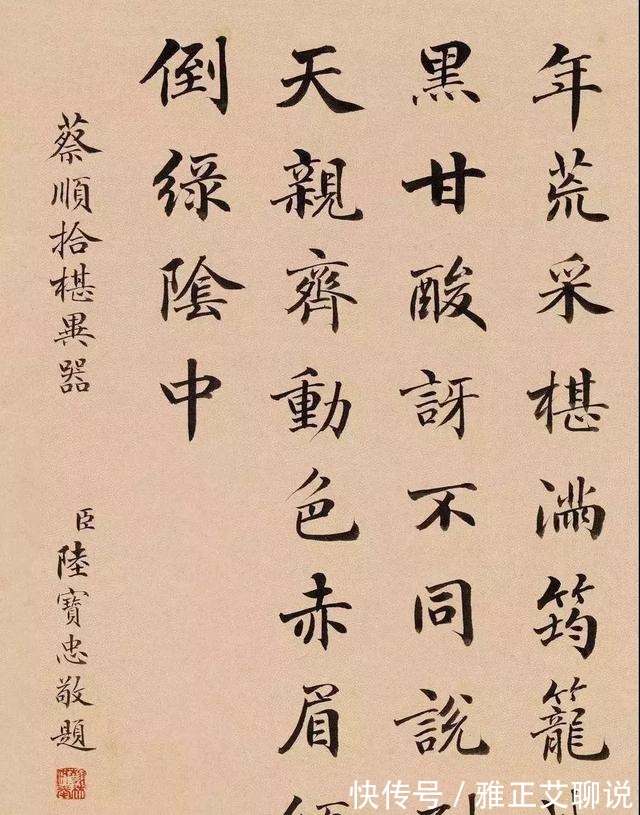 年荒采椹滿筠籠
黑甘酸訝不同說
天親齊動色赤眉
倒綠陰中
蔡順拾椹異器
臣陸寶忠敬題
快传号／雅正艾聊说